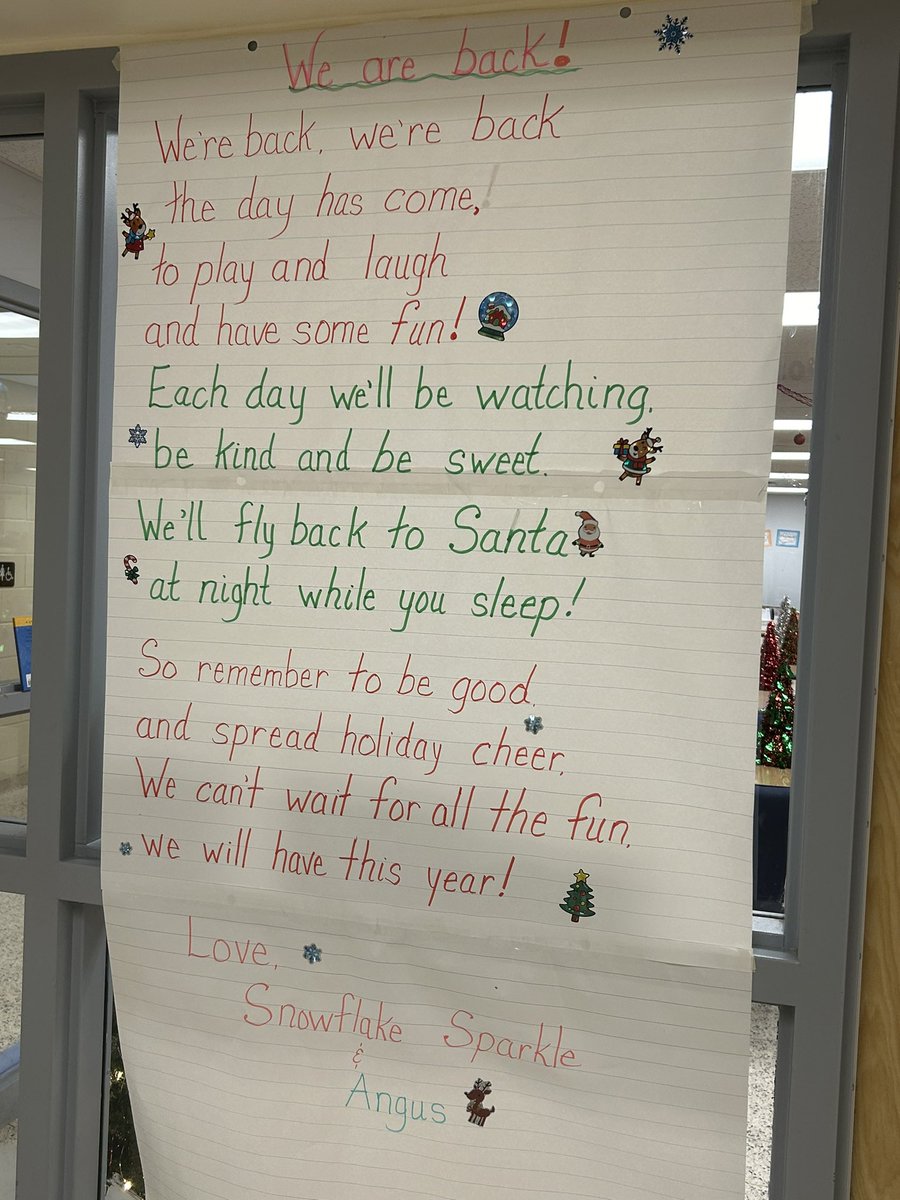 We are back!
We're back, we're back
the day has come,
to play and laugh
and have some fun!
Each day we'll be watching,
be kind and be sweet.
We'll fly back to Santa
at night while you sleep!
So remember to be good,
and spread holiday cheer,
We can't wait for all the fun,
we will have this year!
Love,
Snowflake Sparkle
&
Angus